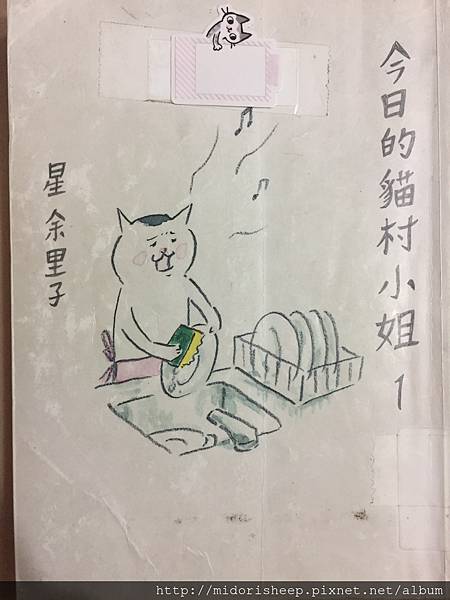 今日的貓村小姐 1
星 余里子
http://midorisheep.pixnet.net/album